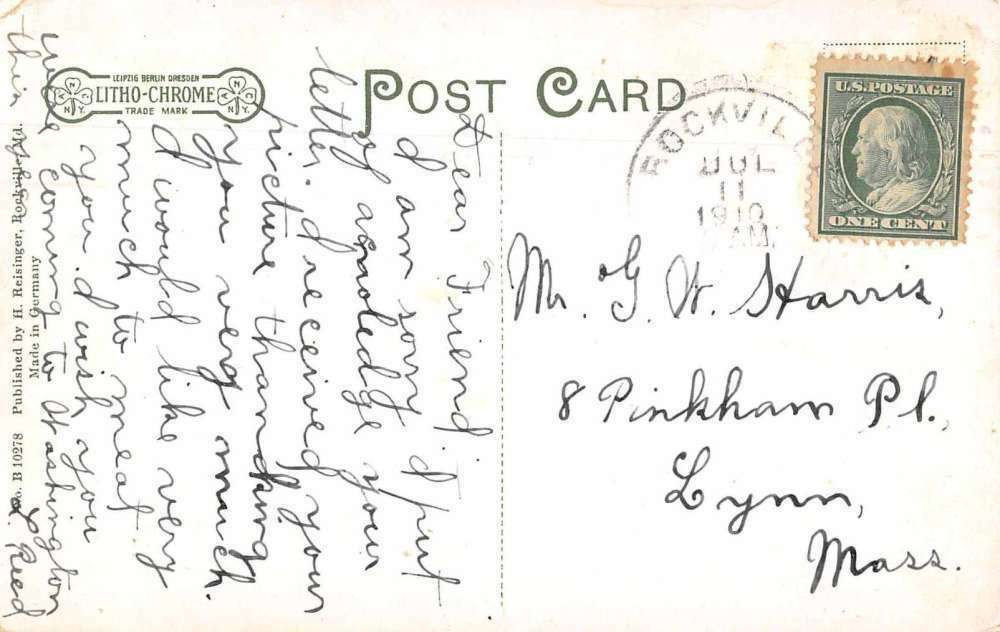 LEIPZIG BERLIN DRESDEN
LITHO-CHROME
TRADE MARK
N.Y.
N.Y.
POST CARD
ROCKVIL
JUL
11
1910
AM.
U.S. POSTAGE
ONE CENT
Mr. G. W. Harris,
8 Pinkham Pl.,
Lynn,
Mass.
Dear Friend.
I am sorry I put
of acnoledge your
letter. I received your
picture thanking
you very much.
I would like very
much to meat
you. I wish you
were coming to Washington
this
L. Reed
No. B 10278 Published by H. Reisinger, Rockville, Md.
Made in Germany